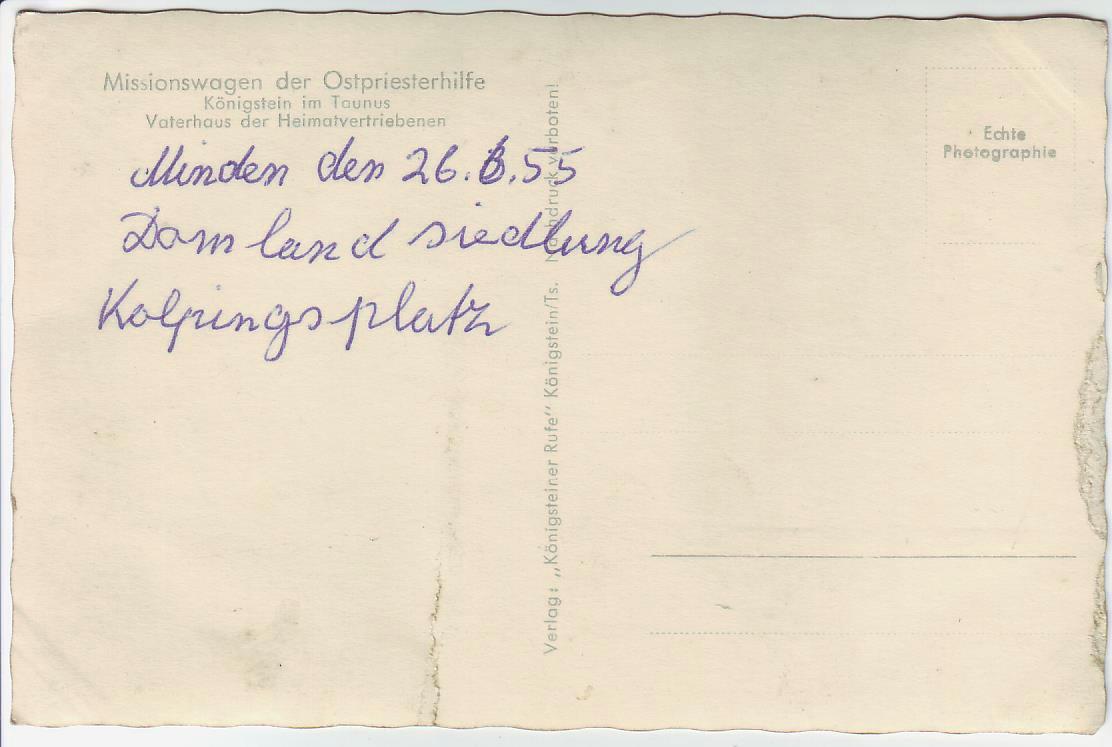 Missionswagen der Ostpriesterhilfe
Königstein im Taunus
Vaterhaus der Heimatvertriebenen
Minden den 26.6.55
Domland siedlung
Kolpingsplatz
Verlag: „Königsteiner Rufe“ Königstein/Ts. Nachdruck verboten!
Echte
Photographie